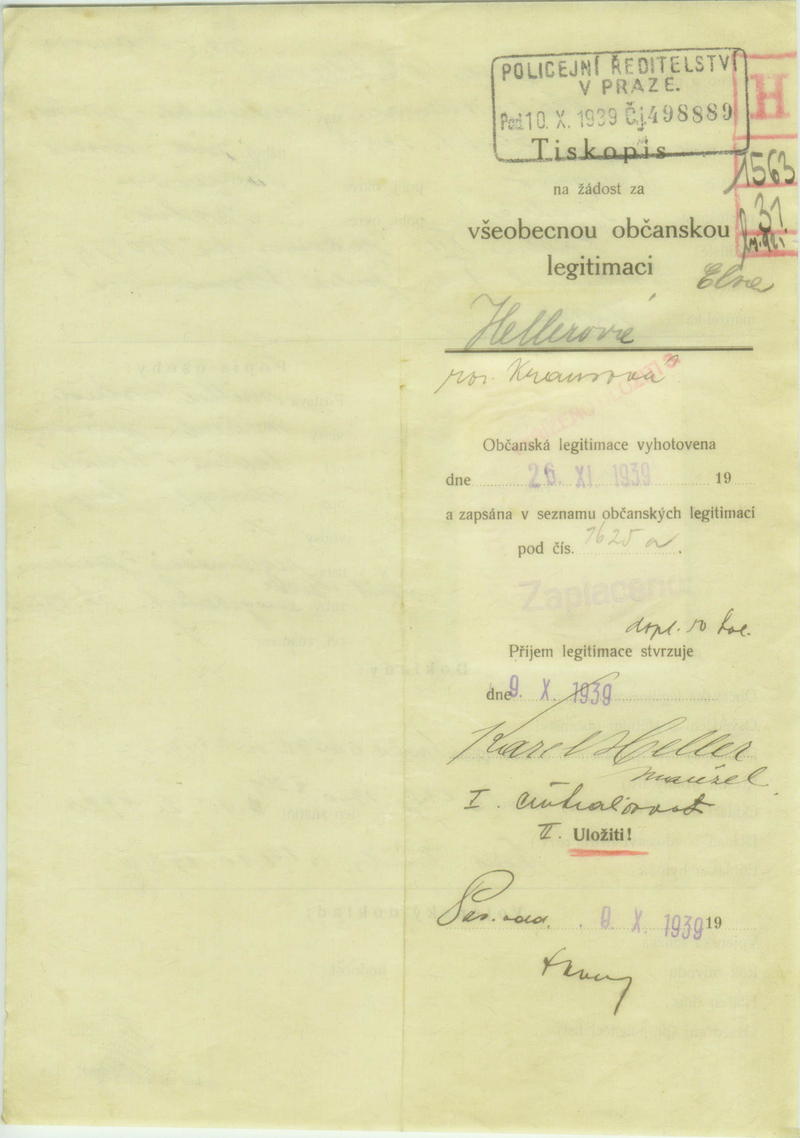 POLICEJNÍ ŘEDITELSTVÍ
V PRAZE.
Pod. 10. X. 1939 Čj 498889
H
Tiskopis
1563
na žádost za
31
všeobecnou občanskou
legitimaci
Elsa
Hellerová
roz. Krausová
Občanská legitimace vyhotovena
dne 26. XI. 1939 19
a zapsána v seznamu občanských legitimací
pod čís. 1625 a.
Zaplaceno
dopl. 10 kol.
Příjem legitimace stvrzuje
dne 9. X. 1939
Karel Heller
manžel.
I.
II. Uložiti!
9. X. 1939 19